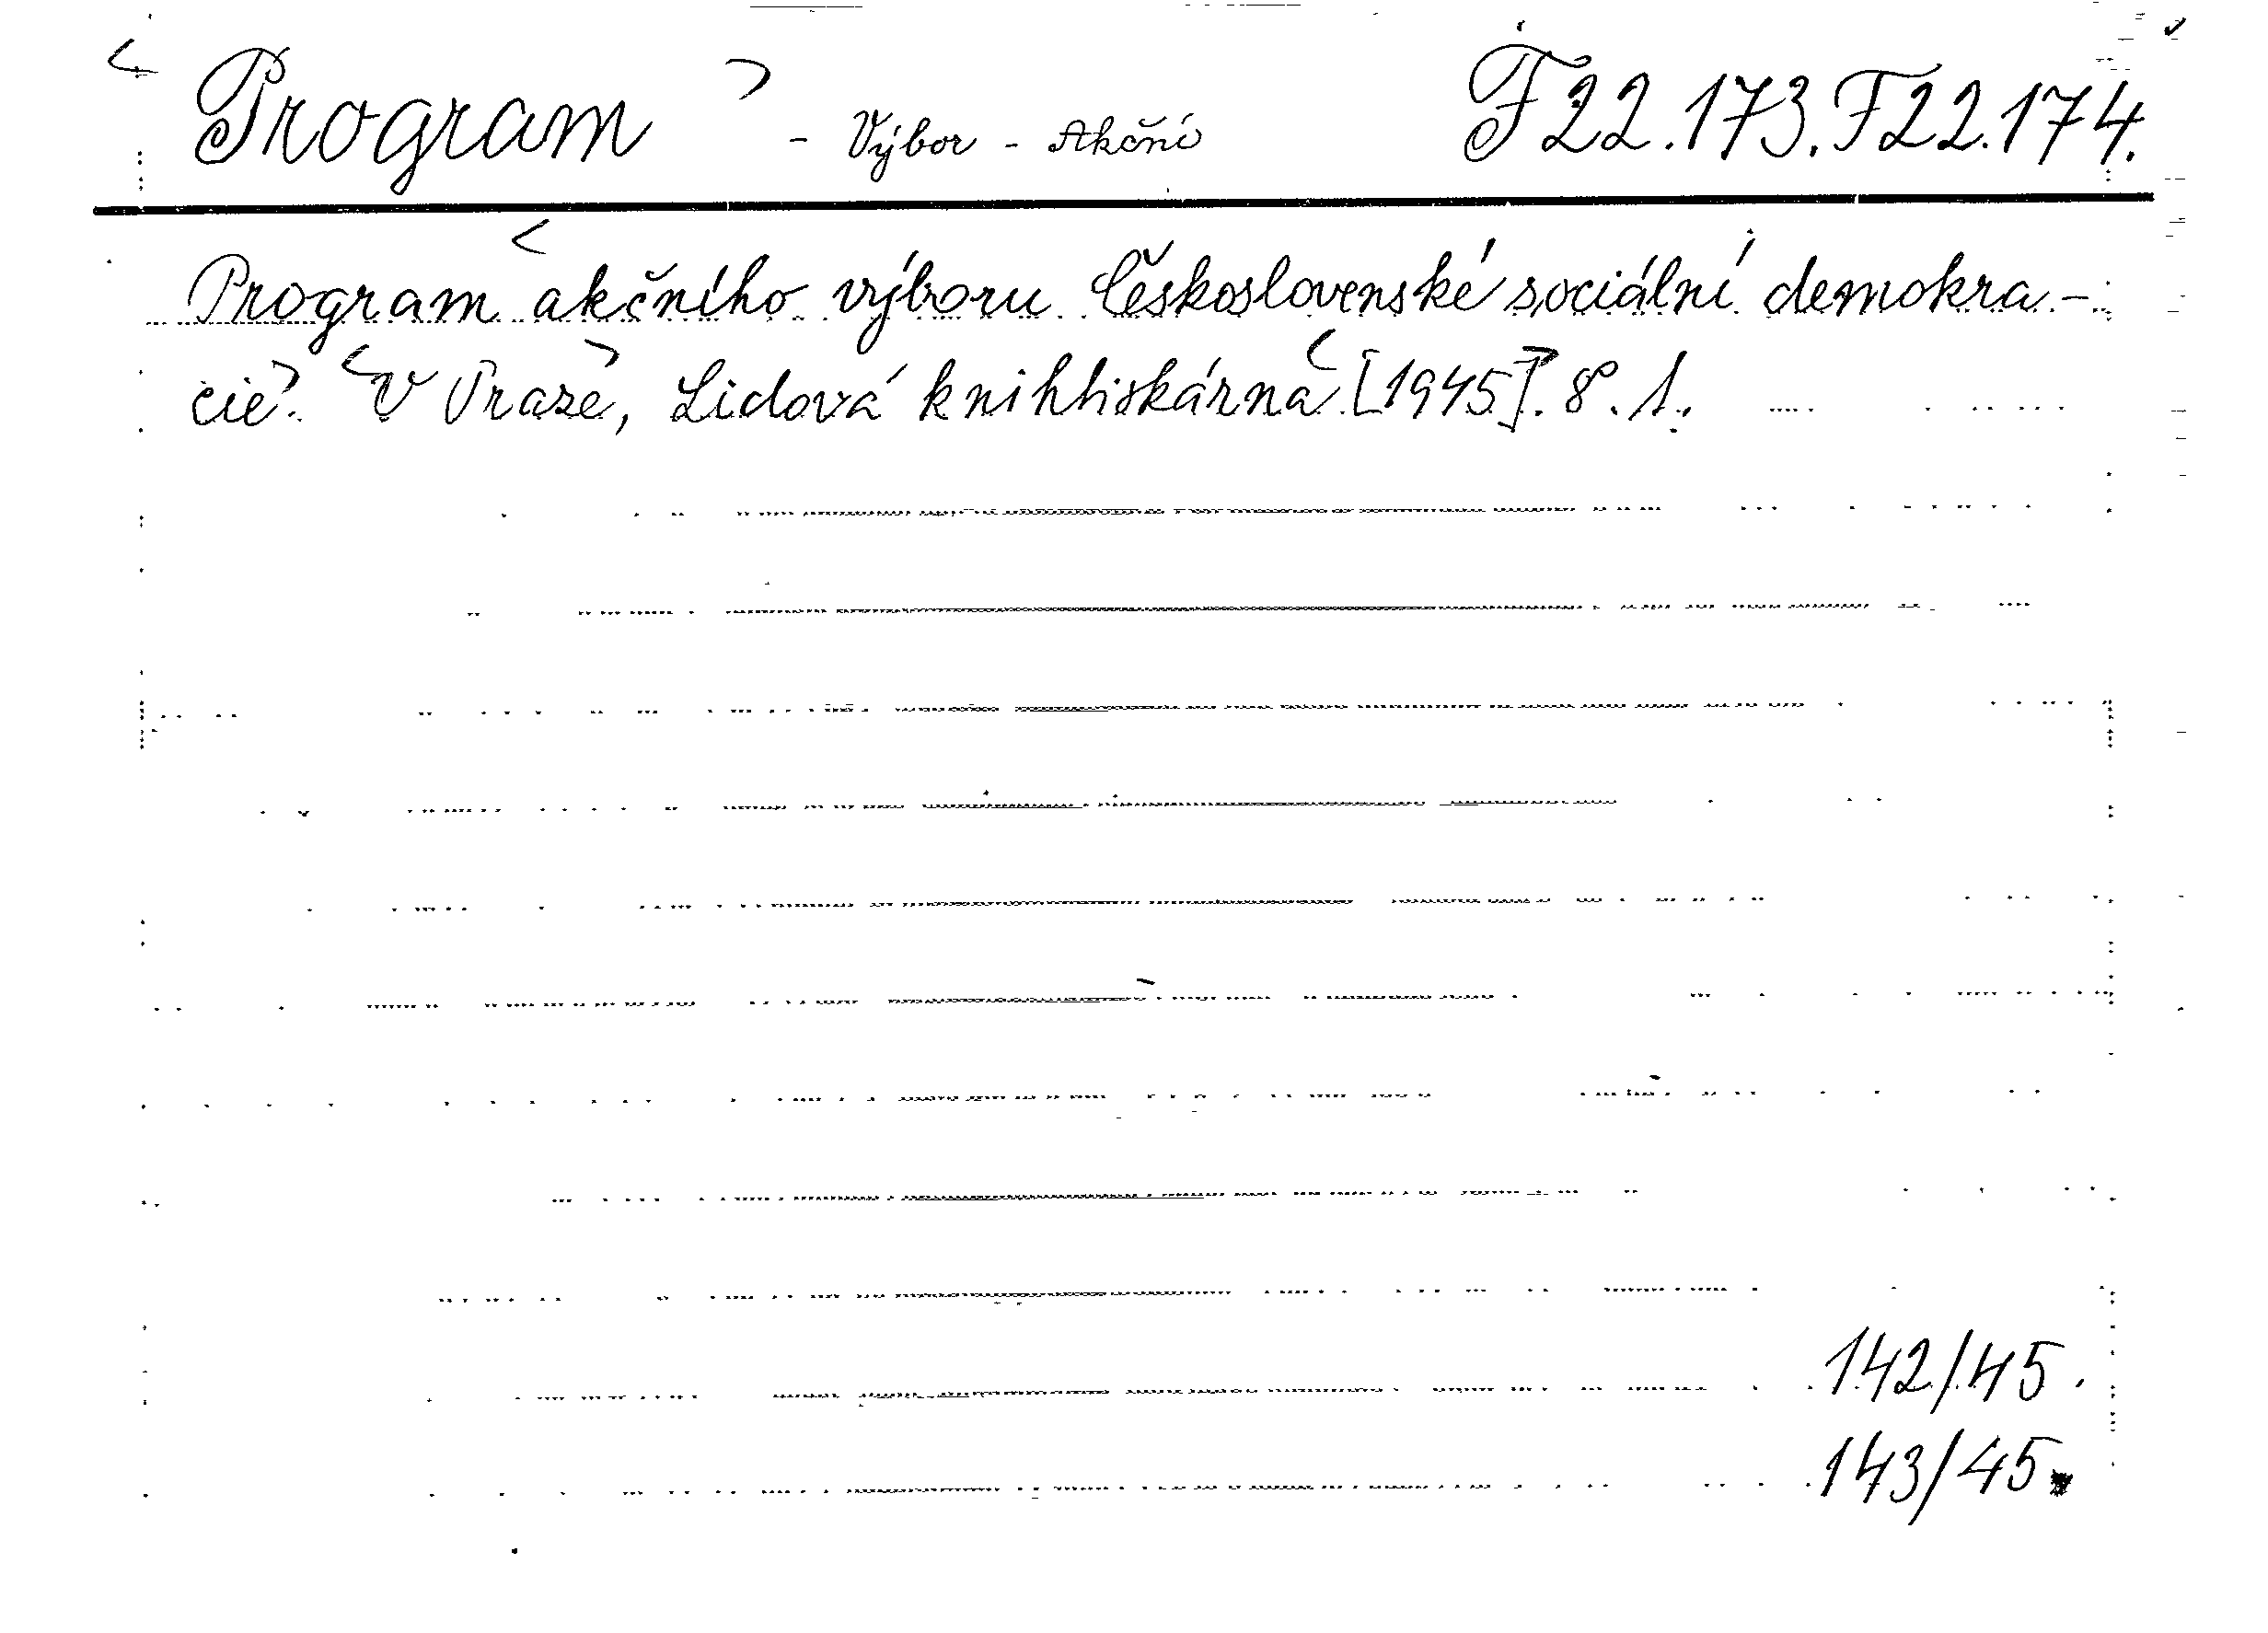 Program - Výbor - Akční F 22.173. F 22.174.
Program akčního výboru Československé sociální demokra-
cie. V Praze, Lidová knihtiskárna [1945]. 8°. 1.
142/45.
143/45.